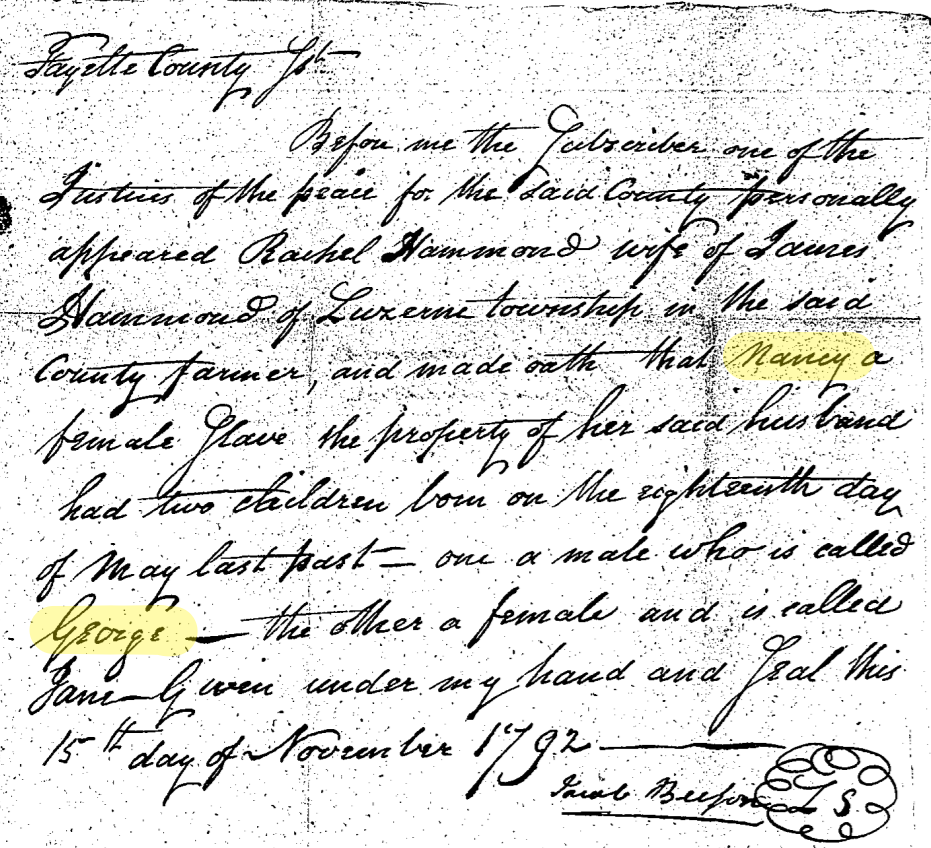 Fayette County Sst
Before me the Subscriber one of the
Justices of the peace for the said County personally
appeared Rachel Hammond wife of James
Hammond of Luzerne township in the said
County farmer, and made oath that Nancy a
female Slave the property of her said husband
had two children born on the eighteenth day
of May last past — one a male who is called
George — the other a female and is called
Jane — Given under my hand and Seal this
15th day of November 1792 —
Jacob Beeson L S.